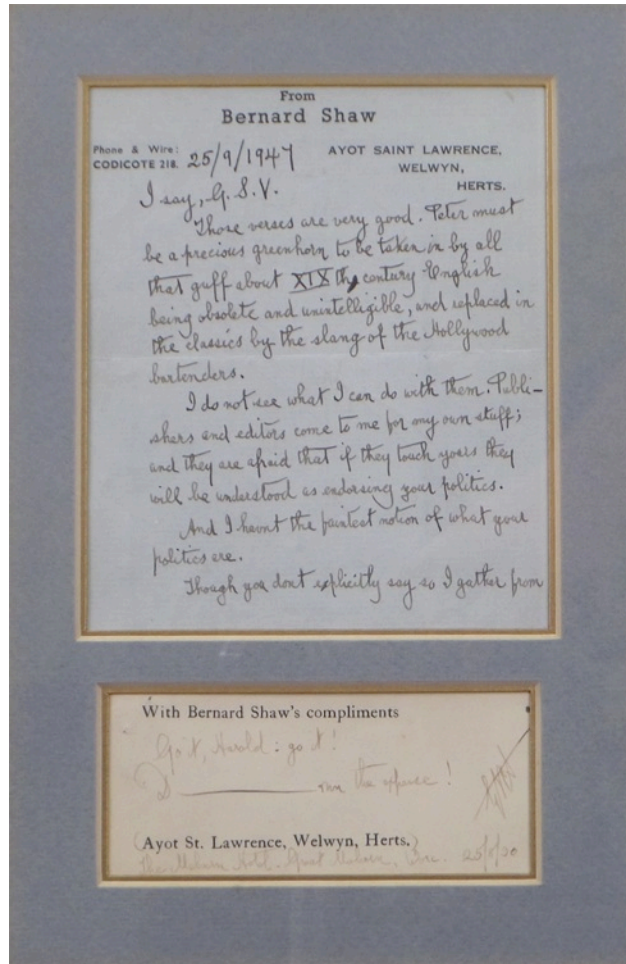 From
Bernard Shaw
Phone & Wire:
CODICOTE 218.
25/9/1947
AYOT SAINT LAWRENCE,
WELWYN,
HERTS.
I say, G. S. V.
Those verses are very good. Peter must
be a precious greenhorn to be taken in by all
that guff about XIXth century English
being obsolete and unintelligible, and replaced in
the classics by the slang of the Hollywood
bartenders.
I do not see what I can do with them. Publi-
shers and editors come to me for my own stuff;
and they are afraid that if they touch yours they
will be understood as endorsing your politics.
And I havnt the faintest notion of what your
politics are.
Though you dont explicitly say so I gather from
With Bernard Shaw's compliments
Go it, Harold: go it!
D——— the expense!
Ayot St. Lawrence, Welwyn, Herts.
Hotel. Great